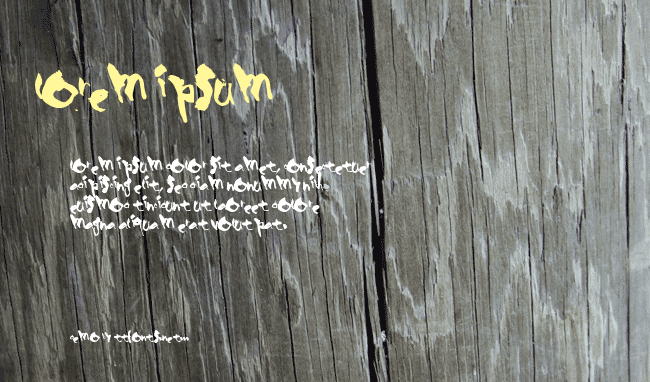 Lorem ipsum
Lorem ipsum dolor sit amet, consectetuer
adipiscing elit, sed diam nonummy nibh
euismod tincidunt ut laoreet dolore
magna aliquam erat volutpat.
demo by ttfonts.net